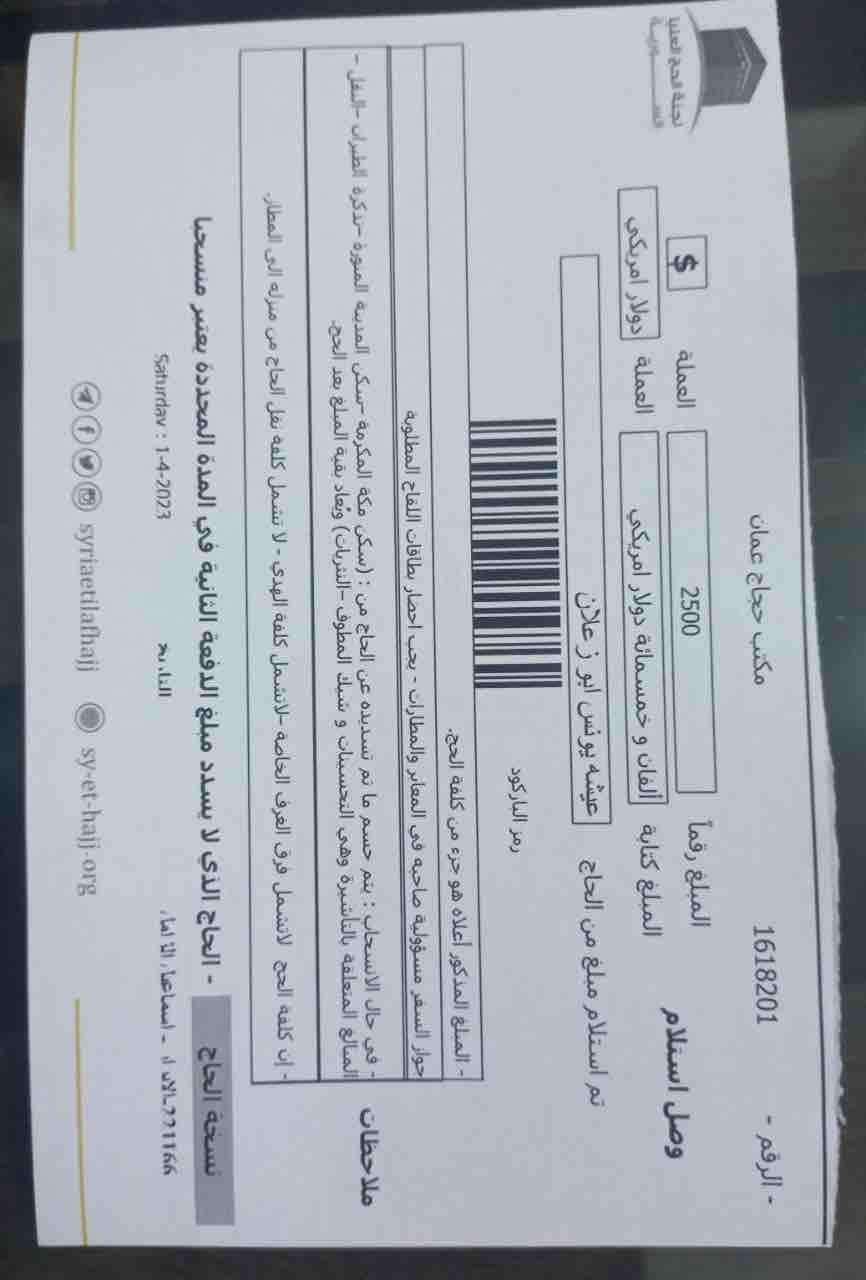 لجنة الحج العليا
مكتب حجاج عمان
- الرقم - 1618201
وصل استلام
المبلغ رقماً 2500 العملة $
المبلغ كتابة ألفان و خمسمائة دولار امريكي العملة دولار امريكي
تم استلام مبلغ من الحاج عيشه يونس ابو زعلان
رمز الباركود
ملاحظات
- المبلغ المذكور أعلاه هو جزء من كلفة الحج.
جواز السفر مسؤولية صاحبه في المعابر والمطارات - يجب احضار بطاقات اللقاح المطلوبة
- في حال الانسحاب : يتم حسم ما تم تسديده عن الحاج من : (سكن مكة المكرمة -سكن المدينة المنورة -تذكرة الطيران -النقل -
المبالغ المتعلقة بالتأشيرة وهي التحسينات و شيك المطوف -النثريات) وتُعاد بقية المبلغ بعد الحج.
- إن كلفة الحج لاتشمل فرق الغرف الخاصة -لاتشمل كلفة الهدي - لا تشمل كلفة نقل الحاج من منزله الى المطار.
نسخة الحاج - الحاج الذي لا يسدد مبلغ الدفعة الثانية في المدة المحددة يعتبر منسحبا
التاريخ Saturday : 1-4-2023
syriaetilafhajj sy-et-hajj-org